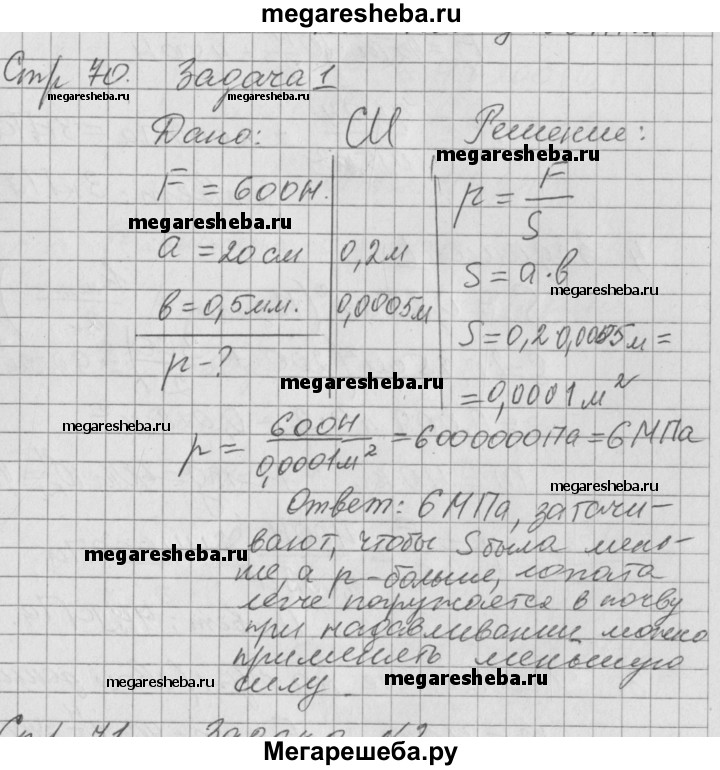 megaresheba.ru
Стр 70. Задача 1
megaresheba.ru megaresheba.ru
Дано: СИ Решение:
megaresheba.ru
F = 600Н. p = F/S
megaresheba.ru
a = 20 см 0,2м S = a · в
megaresheba.ru
в = 0,5мм. 0,0005м S = 0,2 0,0005м =
p - ? = 0,0001 м²
megaresheba.ru
megaresheba.ru
p = 600Н / 0,0001м² = 6000000Па = 6 МПа
megaresheba.ru
Ответ: 6 МПа, затачи-
вают, чтобы S была мень-
megaresheba.ru
ше, а p - больше, лопата
легче погружается в почву
при надавливании можно
применять меньшую
силу.
megaresheba.ru megaresheba.ru
Стр 71 Задача №2
Мегарешеба.ру